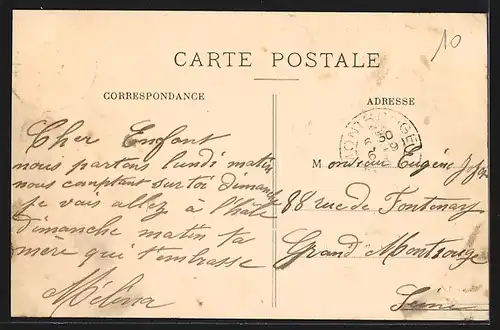 10
CARTE POSTALE
CORRESPONDANCE
ADRESSE
Cher Enfant
nous partons lundi matin
nous comptant sur toi dimanche
je vais allez à l'hale
dimanche matin ta
mère qui t'embrasse
Mélina
MONTROUGE
Monsieur Eugène
88 rue de Fontenay
Grand Montrouge
Seine